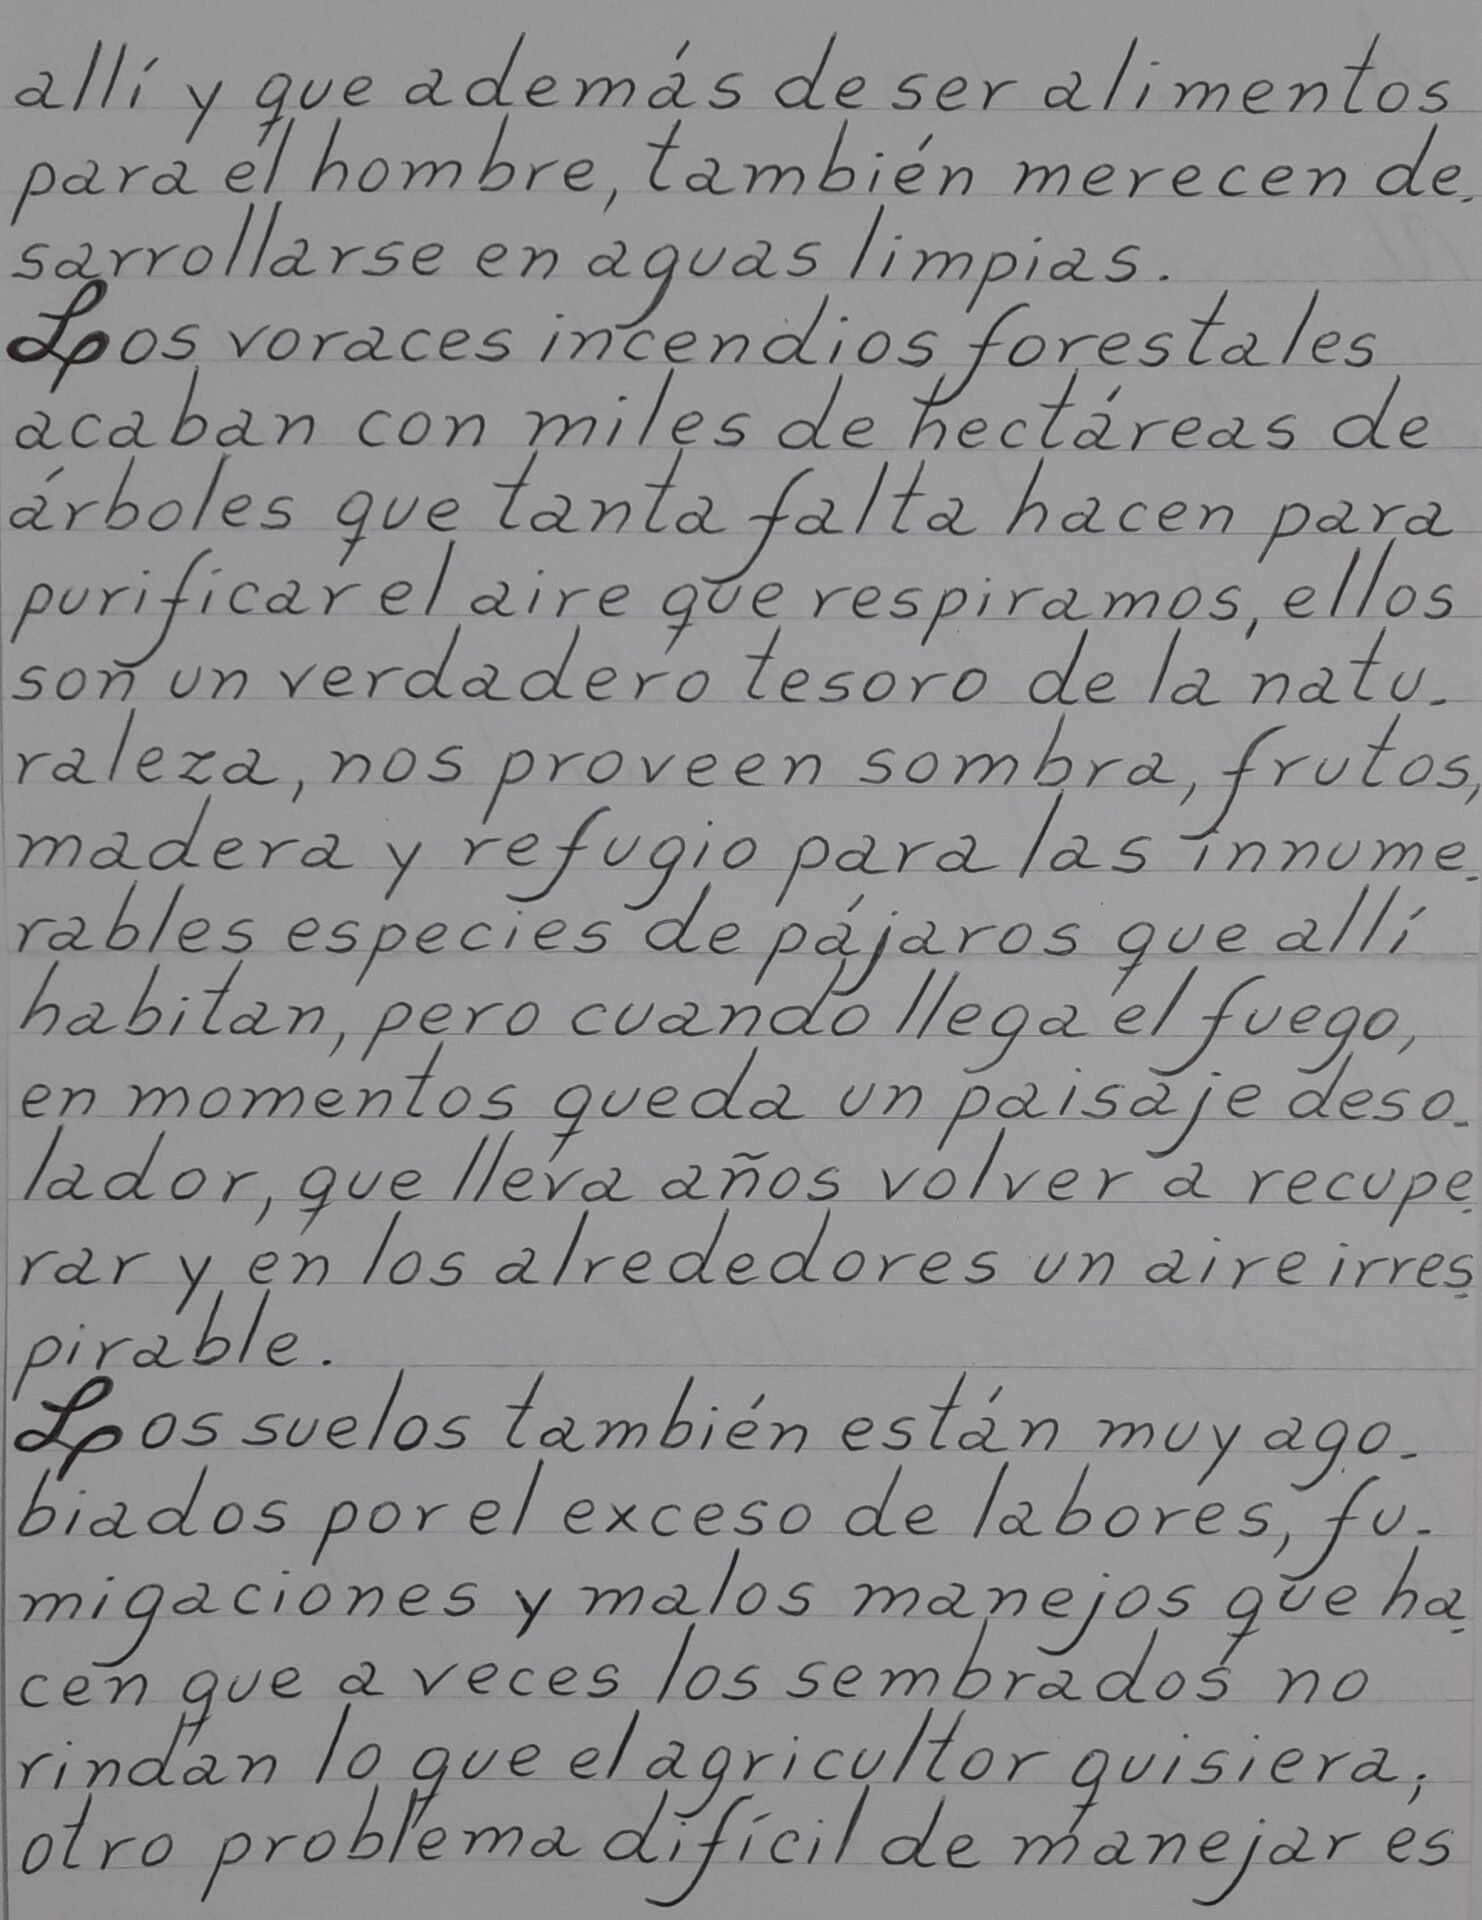 allí y que además de ser alimentos
para el hombre, también merecen de-
sarrollarse en aguas limpias.
Los voraces incendios forestales
acaban con miles de hectáreas de
árboles que tanta falta hacen para
purificar el aire que respiramos, ellos
son un verdadero tesoro de la natu-
raleza, nos proveen sombra, frutos,
madera y refugio para las innume-
rables especies de pájaros que allí
habitan, pero cuando llega el fuego,
en momentos queda un paisaje deso-
lador, que lleva años volver a recupe-
rar y en los alrededores un aire irres-
pirable.
Los suelos también están muy ago-
biados por el exceso de labores, fu-
migaciones y malos manejos que ha-
cen que a veces los sembrados no
rindan lo que el agricultor quisiera;
otro problema difícil de manejar es